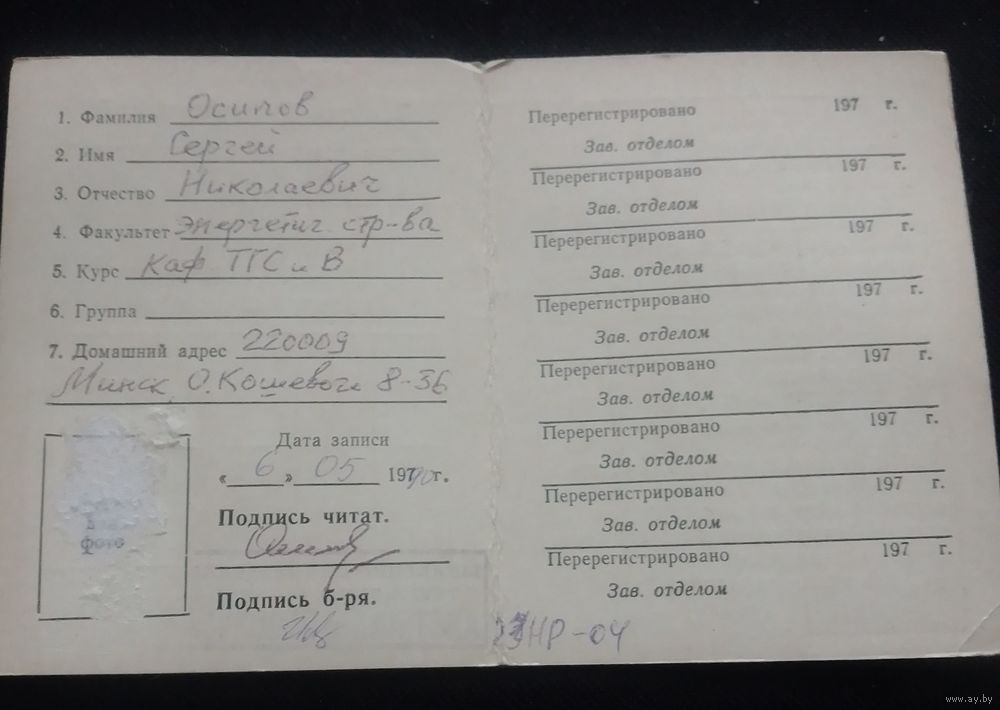 1. Фамилия Осипов
2. Имя Сергей
3. Отчество Николаевич
4. Факультет Энергетич. стр-ва
5. Курс Каф ТГС и В
6. Группа
7. Домашний адрес 220009
Минск, О. Кошевого 8-36
фото
Дата записи
«6» 05 1990 г.
Подпись читат.
Подпись б-ря.
Перерегистрировано 197 г.
Зав. отделом
Перерегистрировано 197 г.
Зав. отделом
Перерегистрировано 197 г.
Зав. отделом
Перерегистрировано 197 г.
Зав. отделом
Перерегистрировано 197 г.
Зав. отделом
Перерегистрировано 197 г.
Зав. отделом
Перерегистрировано 197 г.
Зав. отделом
Перерегистрировано 197 г.
Зав. отделом
НР-04
www.ay.by